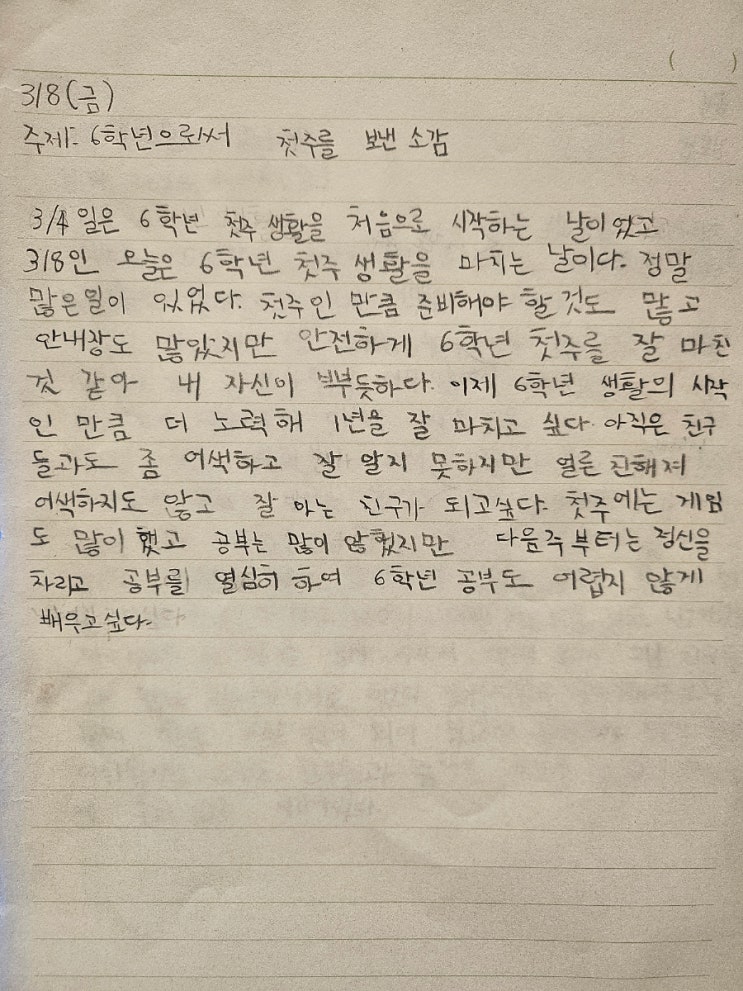 (        )
3/8(금)
주제: 6학년으로서 첫주를 보낸 소감
3/4일은 6학년 첫주 생활을 처음으로 시작하는 날이었고
3/8인 오늘은 6학년 첫주 생활을 마치는 날이다. 정말
많은일이 있었다. 첫주인 만큼 준비해야 할것도 많고
안내장도 많았지만 안전하게 6학년 첫주를 잘 마친
것 같아 내 자신이 뿌듯하다. 이제 6학년 생활의 시작
인 만큼 더 노력해 1년을 잘 마치고 싶다. 아직은 친구
들과도 좀 어색하고 잘 알지 못하지만 얼른 친해져
어색하지도 않고 잘 아는 친구가 되고싶다. 첫주에는 게임
도 많이 했고 공부는 많이 않했지만 다음주부터는 정신을
차리고 공부를 열심히 하여 6학년 공부도 어렵지 않게
배우고싶다.